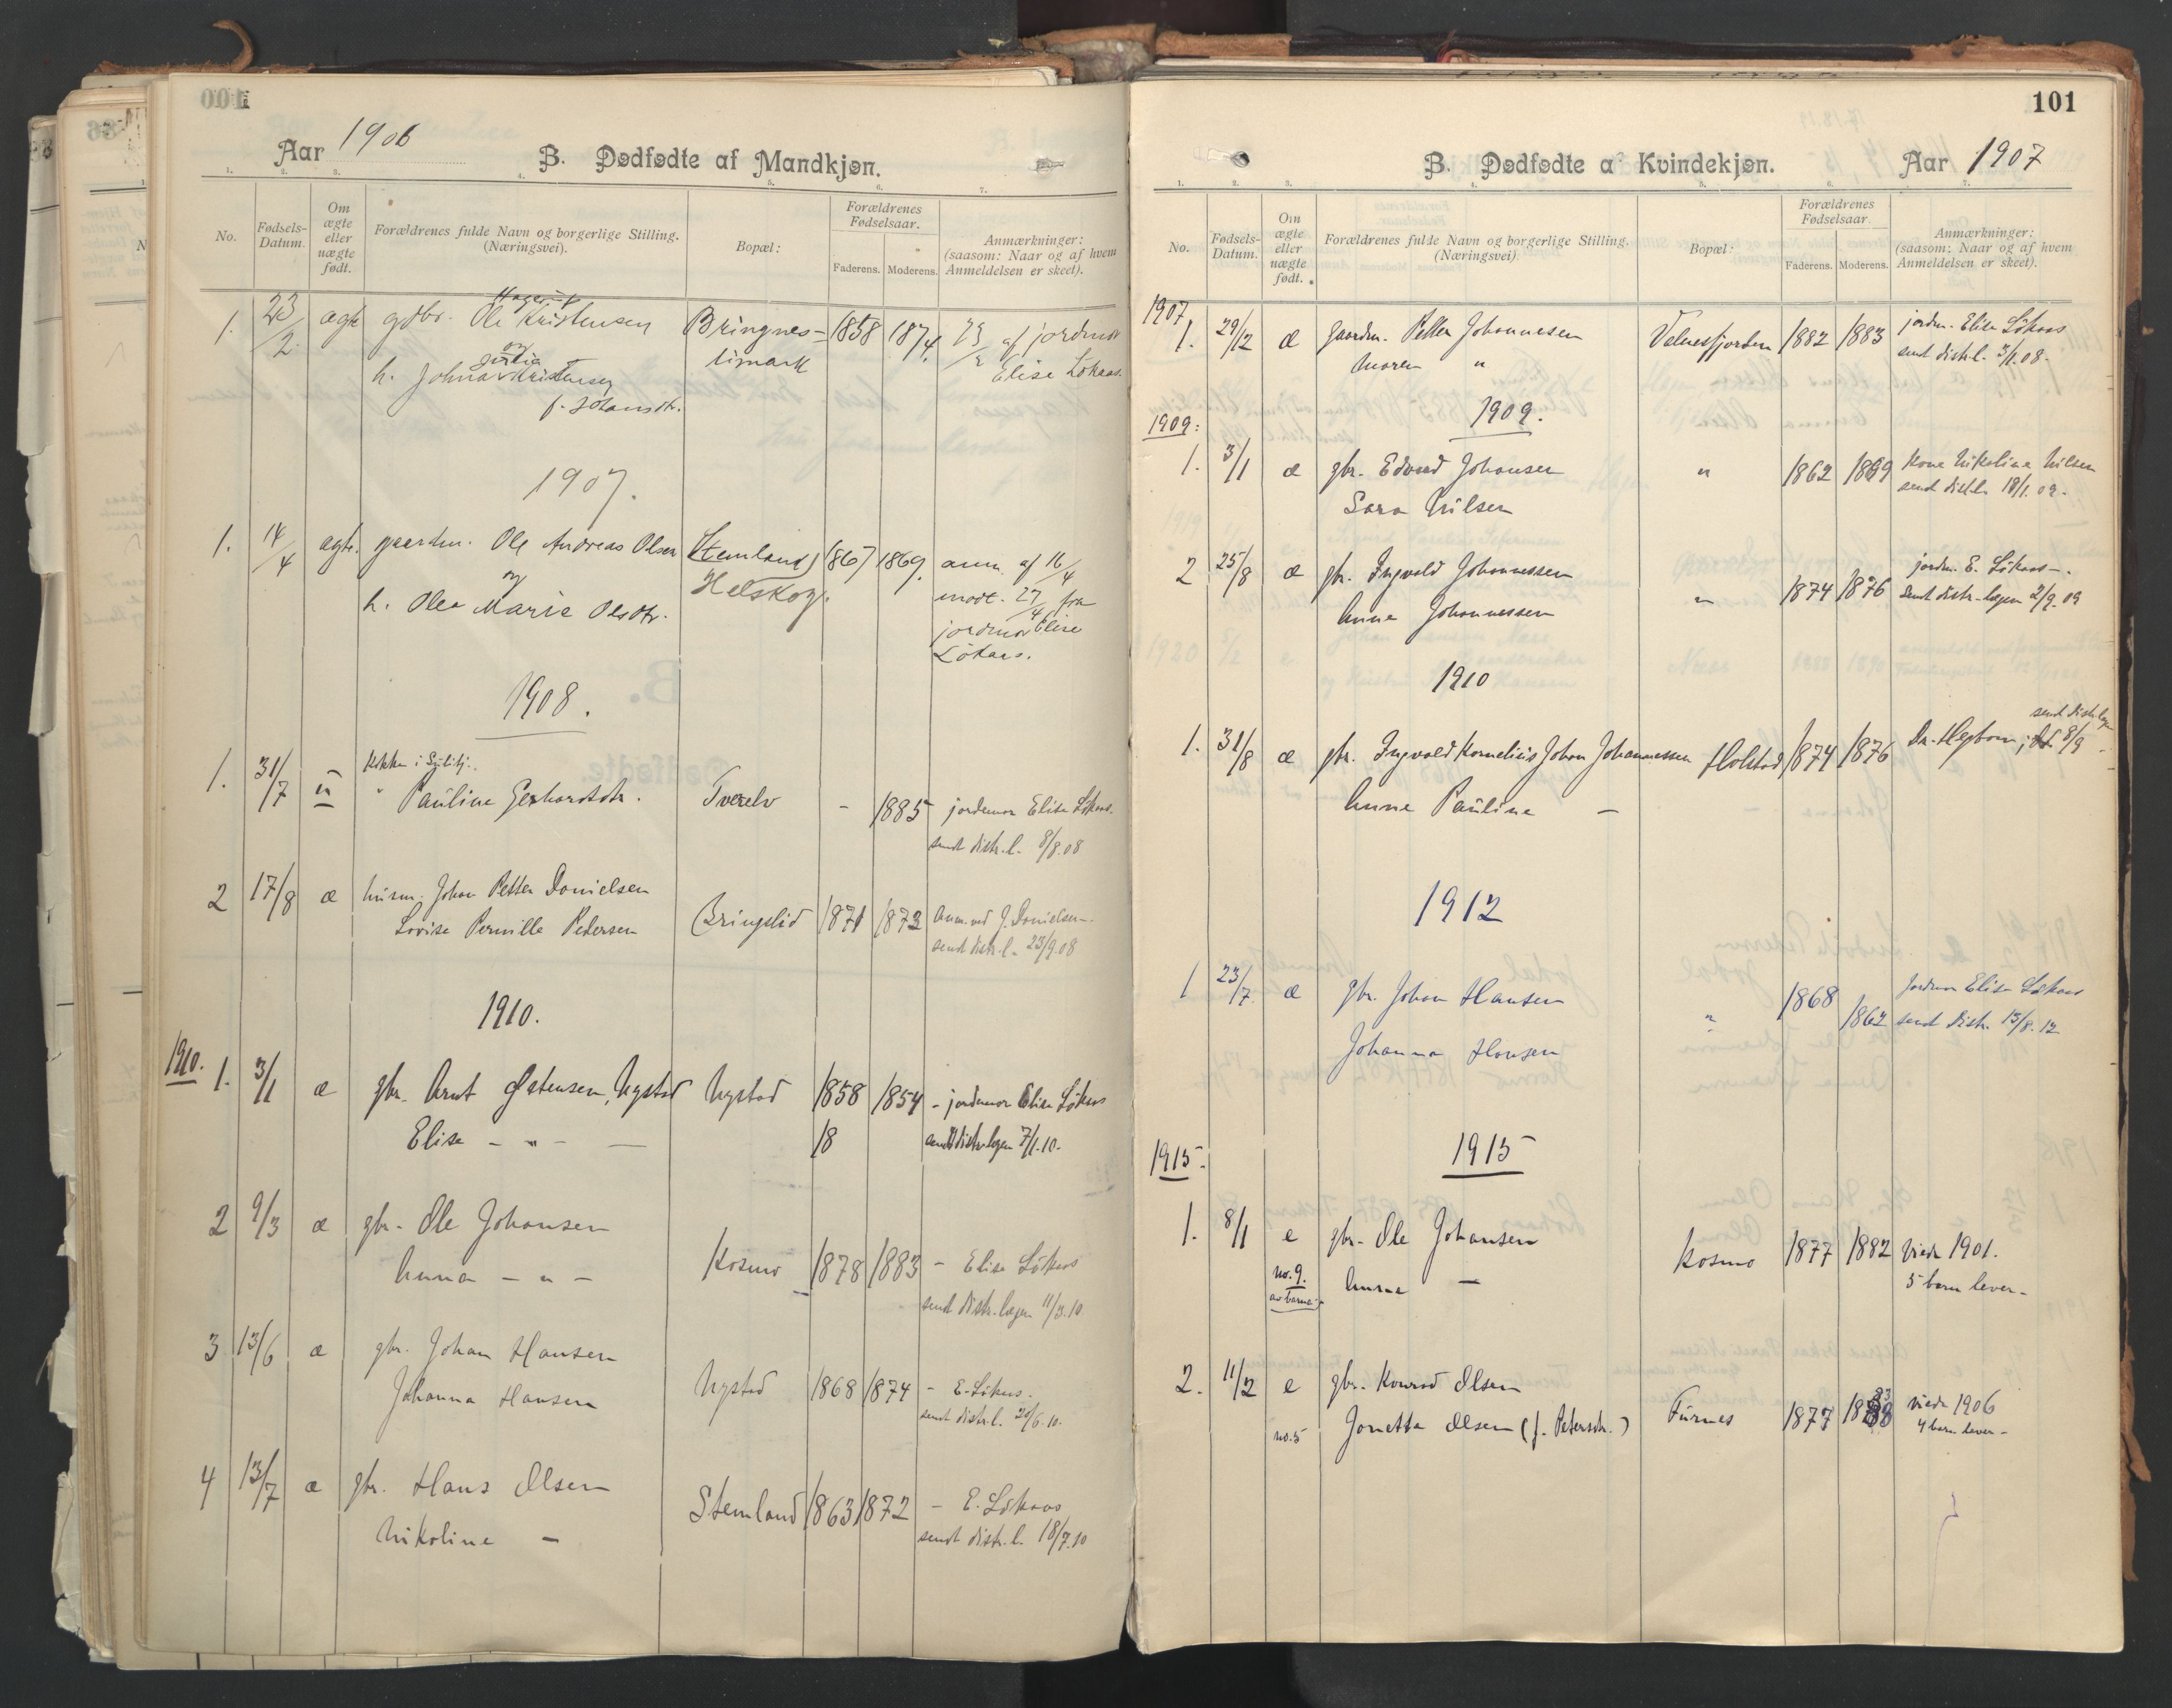 Aar 1906
B. Dødfødte af Mandkjøn.
No.
Fødsels-
Datum.
Om
ægte
eller
uægte
født.
Forældrenes fulde Navn og borgerlige Stilling.
(Næringsvei).
Bopæl:
Forældrenes
Fødselsaar.
Faderens. Moderens.
Anmærkninger:
(saasom: Naar og af hvem
Anmeldelsen er skeet).
1. 23/2 ægte gdbr. Ole Kristensen Bringnes- 1858 1874. 23/2 af jordmor
og limark Elise Løkaas.
h. Johna Kristensen
f. Johansdtr.
1907.
1. 14/4 ægte. gaardm. Ole Andreas Olsen Stemland 1867 1869. anm. af 16/4
og Helskog. modt. 27/4 fra
h. Olea Marie Olsdtr. jordmor Elise
Løkaas.
1908.
Kokke i
1. 31/7 u Pauline Gerhardsdtr. Tverelv - 1885 jordemor Elise Løkaas.
sendt distr.l. 8/8.08
2 17/8 æ husm. Johan Petter Danielsen Bringslid 1871 1873 Anm. ved J. Danielsen.
Lovise Pernille Pedersen sendt distr.l. 23/9.08
1910.
1910. 1. 3/1 æ gbr. Arnt Østensen, Nystad Nystad 1858 1854 - jordemor Elise Løkaas
Elise - " - 18 sendt distr.lægen 7/1.10.
2 9/3 æ gbr. Ole Johansen
Anna - " - Kosmo 1878 1883 - Elise Løkaas
sendt distr.lægen 11/3.10
3 13/6 æ gbr. Johan Hansen
Johanna Hansen Nystad 1868 1874 - E. Løkaas.
sendt distr.l. 20/6.10.
4 13/7 æ gbr. Hans Olsen Stemland 1863 1872 - E. Løkaas
Nikoline - sendt distr.l. 18/7.10
101
B. Dødfødte a Kvindekjøn.
Aar 1907
No.
Fødsels-
Datum.
Om
ægte
eller
uægte
født.
Forældrenes fulde Navn og borgerlige Stilling.
(Næringsvei).
Bopæl:
Forældrenes
Fødselsaar.
Faderens. Moderens.
Anmærkninger:
(saasom: Naar og af hvem
Anmeldelsen er skeet).
1907
1. 29/12 æ gaardm. Petter Johannesen Valnesfjorden 1882 1883 jordm. Elise Løkaas
Maren " sendt distr.l. 3/1.08.
1909: 1909.
1. 3/1 æ gbr. Edvard Johansen " 1862 1869 Kone Nikoline Nilsen
Sara Nilsen sendt distr.l. 18/1.09.
2 25/8 æ gbr. Ingvald Johannessen " 1874 1876 jordm. E. Løkaas.
Anne Johannessen sendt distr.lægen 2/9.09
1910
1. 31/8 æ gbr. Ingvald Kornelius Johan Johannessen Holstad 1874 1876 sendt distr.lægen 8/9
Anne Pauline -
1912
1 23/7. æ gbr. Johan Hansen " 1868 1862 Jordmor Elise Løkaas
Johanna Hansen sendt distr. 13/8.12
1915. 1915
1. 8/1 e gbr. Ole Johansen Kosmo 1877 1882 Viede 1901.
no. 9. av barna Anna - 5 barn lever.
2. 11/2 e gbr. Konrad Olsen Furnes 1877 1883 viede 1906
no. 5 Jonetta Olsen (f. Petersdtr.) 4 barn lever.